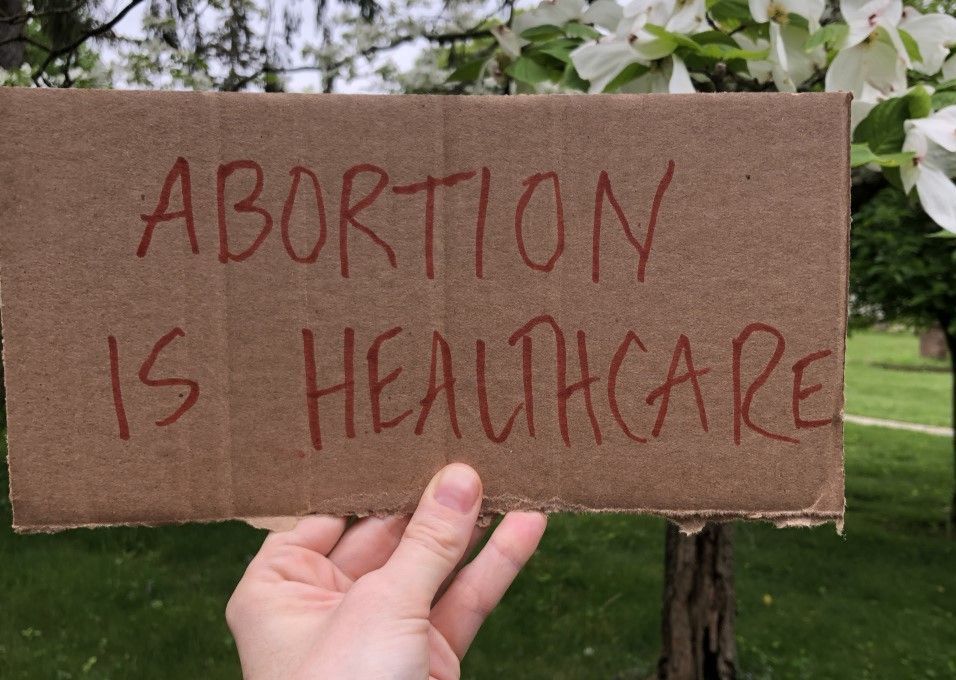 ABORTION
IS HEALTHCARE